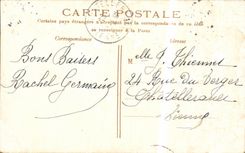 CARTE POSTALE
Certains pays étrangers n'acceptent pas la correspondance de ce côté
se renseigner à la Poste
Correspondance
Bons Baisers
Rachel Germain
Melle J. Thiennet
24 Rue du Verger
Châtellerault
Vienne